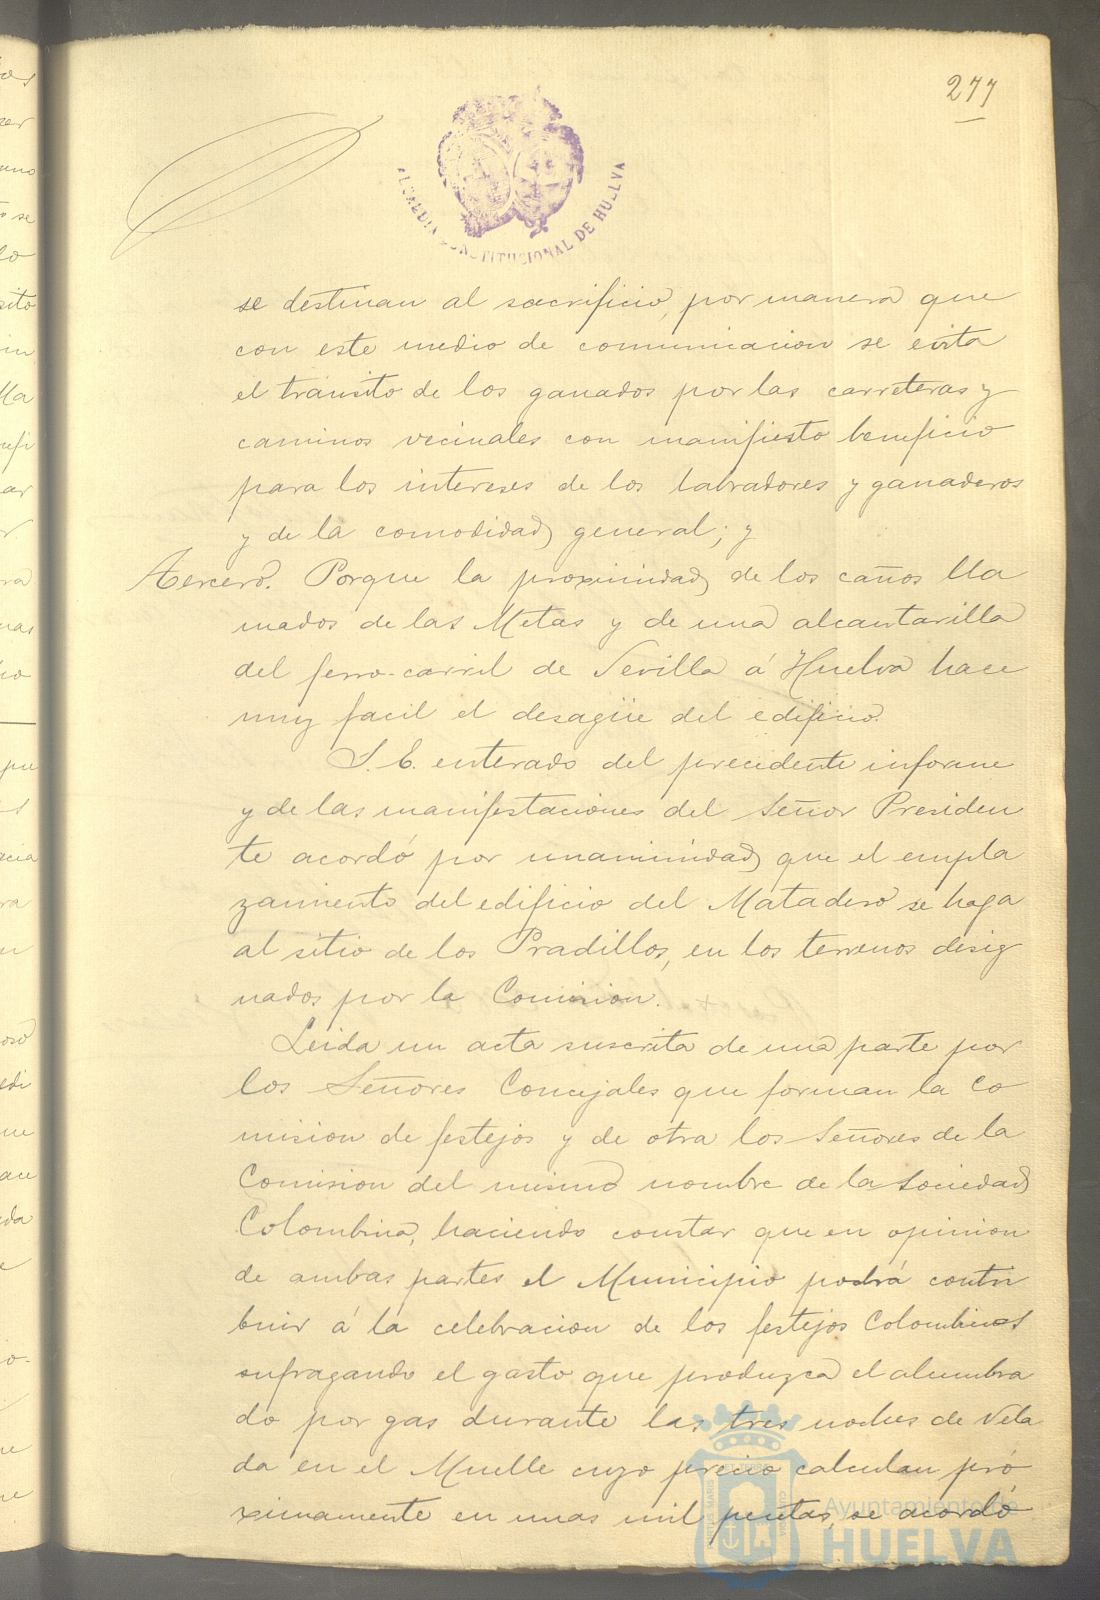 277
ALCALDIA CONSTITUCIONAL DE HUELVA
se destinan al sacrificio, por manera que
con este medio de comunicacion se evita
el tránsito de los ganados por las carreteras y
caminos vecinales con manifiesto beneficio
para los intereses de los labradores y ganaderos
y de la comodidad general; y
Tercero. Porque la proximidad de los caños lla
mados de las Metas y de una alcantarilla
del ferro-carril de Sevilla á Huelva hace
muy facil el desagüe del edificio.
S. E. enterado del precedente informe
y de las manifestaciones del Señor Presiden
te acordó por unanimidad que el empla
zamiento del edificio del Matadero se haga
al sitio de los Pradillos, en los terrenos desig
nados por la Comision.
Leida un acta suscrita de una parte por
los Señores Concejales que forman la Co
mision de festejos y de otra los Señores de la
Comision del mismo nombre de la Sociedad
Colombina, haciendo constar que en opinion
de ambas partes el Municipio podrá contri
buir á la celebracion de los festejos Colombinos
sufragando el gasto que produzca el alumbra
do por gas durante las tres noches de Vela
da en el Muelle cuyo precio calculan pró
ximamente en unas mil pesetas, se acordó
Ayuntamiento de
HUELVA